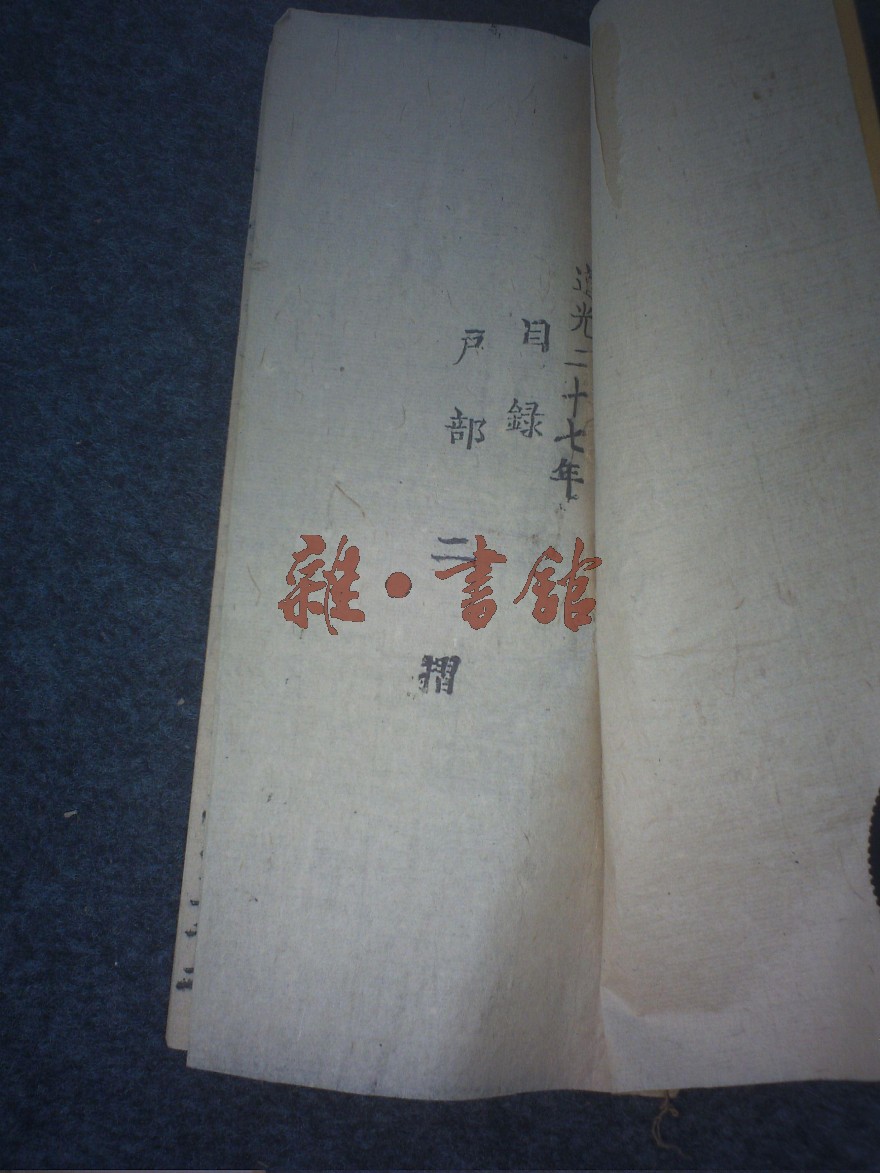 道光二十七年
目録
戶部 二 摺
雜·書館